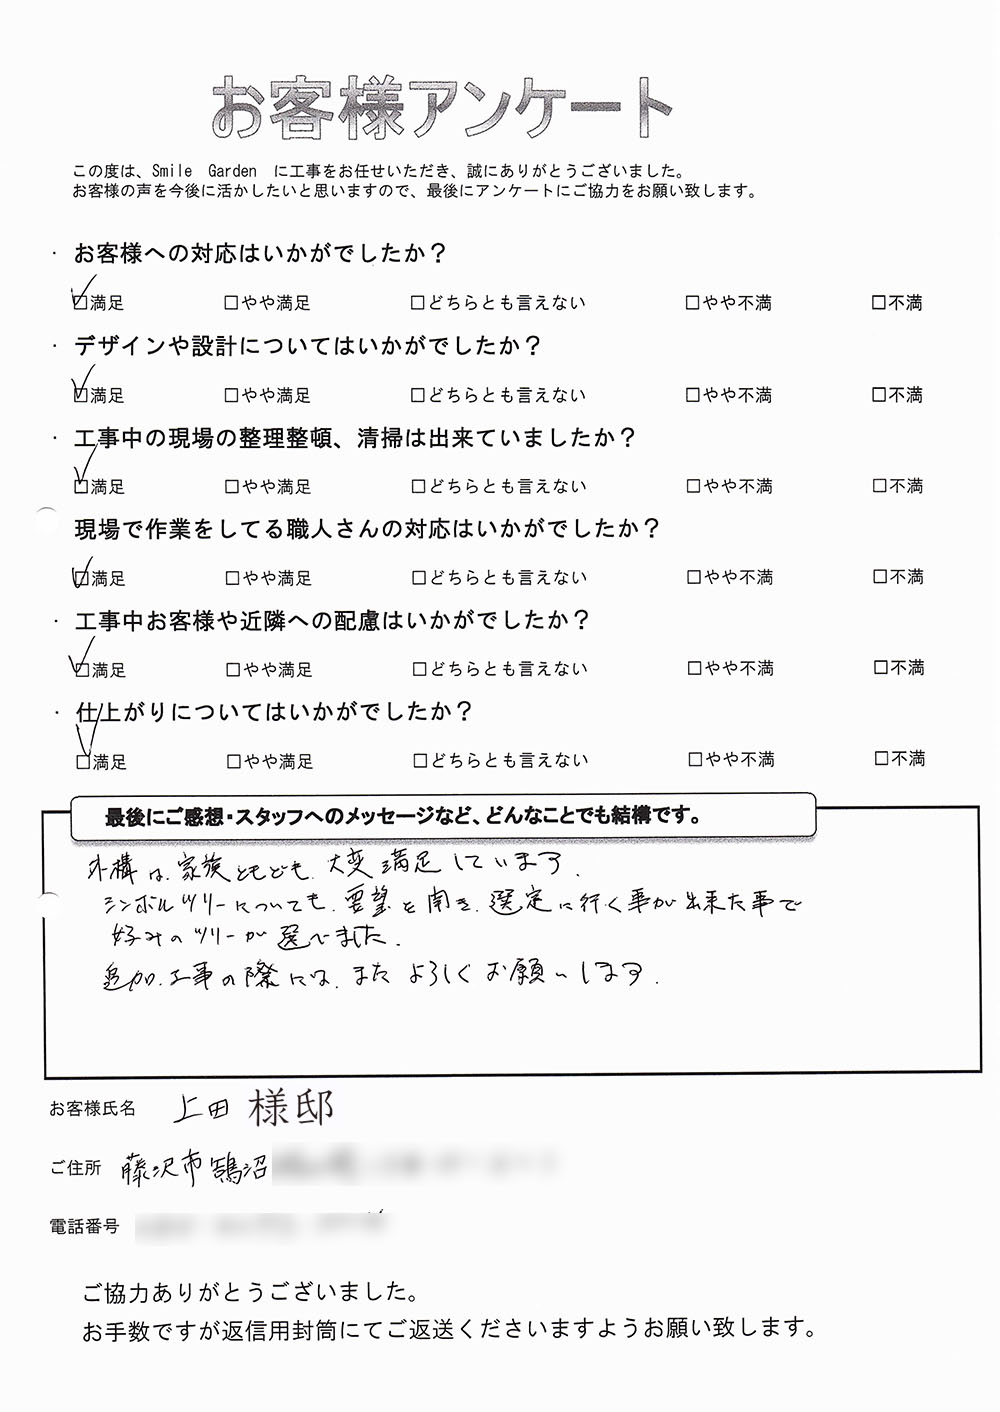 お客様アンケート
この度は、Smile Garden に工事をお任せいただき、誠にありがとうございました。
お客様の声を今後に活かしたいと思いますので、最後にアンケートにご協力をお願い致します。
・ お客様への対応はいかがでしたか？
☑満足 □やや満足 □どちらとも言えない □やや不満 □不満
・ デザインや設計についてはいかがでしたか？
☑満足 □やや満足 □どちらとも言えない □やや不満 □不満
・ 工事中の現場の整理整頓、清掃は出来ていましたか？
☑満足 □やや満足 □どちらとも言えない □やや不満 □不満
現場で作業をしてる職人さんの対応はいかがでしたか？
☑満足 □やや満足 □どちらとも言えない □やや不満 □不満
・ 工事中お客様や近隣への配慮はいかがでしたか？
☑満足 □やや満足 □どちらとも言えない □やや不満 □不満
・ 仕上がりについてはいかがでしたか？
☑満足 □やや満足 □どちらとも言えない □やや不満 □不満
最後にご感想・スタッフへのメッセージなど、どんなことでも結構です。
外構は、家族ともども、大変満足しています。
シンボルツリーについても、要望を聞き、選定に行く事が出来た事で
好みのツリーが選べました。
追加工事の際には、またよろしくお願いします。
お客様氏名 上田 様邸
ご住所 藤沢市鵠沼
電話番号
ご協力ありがとうございました。
お手数ですが返信用封筒にてご返送くださいますようお願い致します。